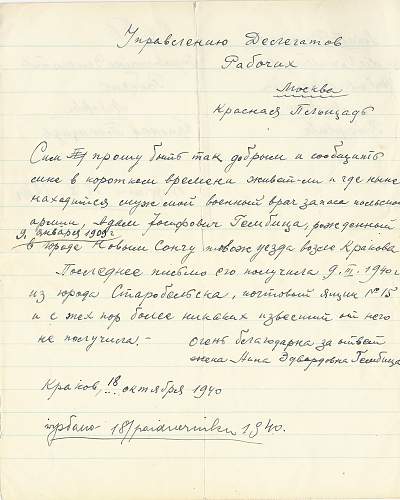 Управлению Делегатов
Рабочих
Москва
Красная Площадь
Сим прошу быть так добрым и сообщить
мне в коротком времени живет-ли и где ныне
находится муж мой военный врач запаса польской
армии, Адам Јосифович Гембица, рожденный
9. января 1909 г
в городе Новым Сончу тамож уезда возле Кракова
Последнее письмо его получила 9. III. 1940 г
из города Старобельска, почтовый ящик № 15
и с тех пор более никаких известий от него
не получила. -
очень благодарна за ответ
жена Нина Эдвардовна Гембица
Краков, 18 октября 1940
18/ października 1940.